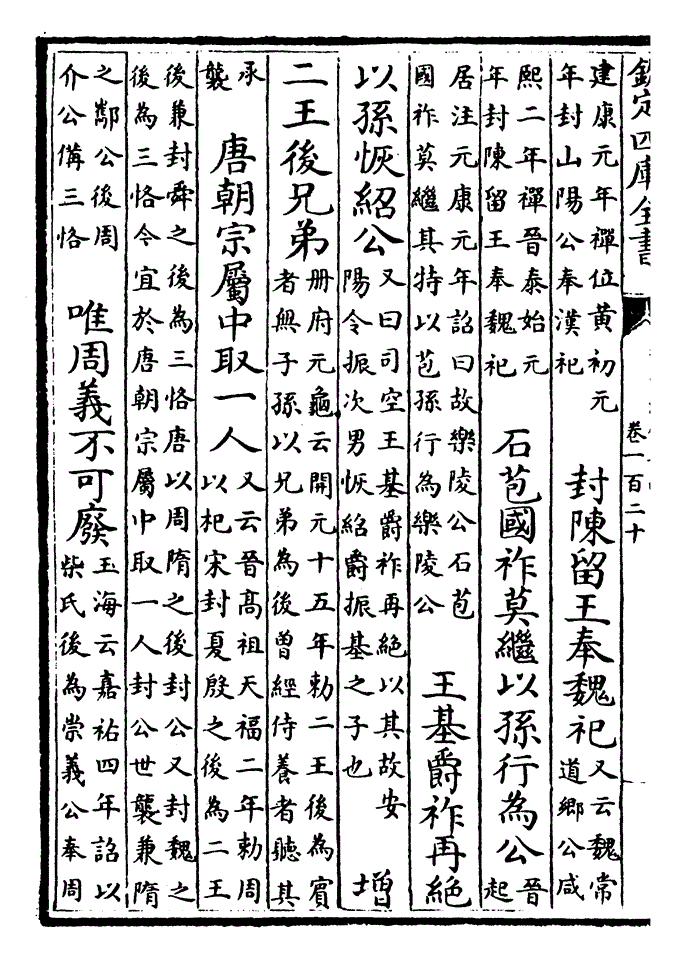 欽定四庫全書
卷一百二十
建康元年禪位黃初元
年封山陽公奉漢祀
封陳留王奉魏祀
又云魏常
道鄉公咸
熙二年禪晉泰始元
年封陳留王奉魏祀
石苞國祚莫繼以孫行為公
晉
起
居注元康元年詔曰故樂陵公石苞
國祚莫繼其特以苞孫行為樂陵公
王基爵祚再絕
以孫恢紹公
又曰司空王基爵祚再絕以其故安
陽令振次男恢紹爵振基之子也
增
二王後兄弟
冊府元龜云開元十五年勅二王後為賓
者無子孫以兄弟為後曾經侍養者聽其
承
襲
唐朝宗屬中取一人
又云晉髙祖天福二年勅周
以杞宋封夏殷之後為二王
後兼封舜之後為三恪唐以周隋之後封公又封魏之
後為三恪令宜於唐朝宗屬中取一人封公世襲兼隋
之酅公後周
介公備三恪
唯周義不可廢
玉海云嘉祐四年詔以
柴氏後為崇義公奉周